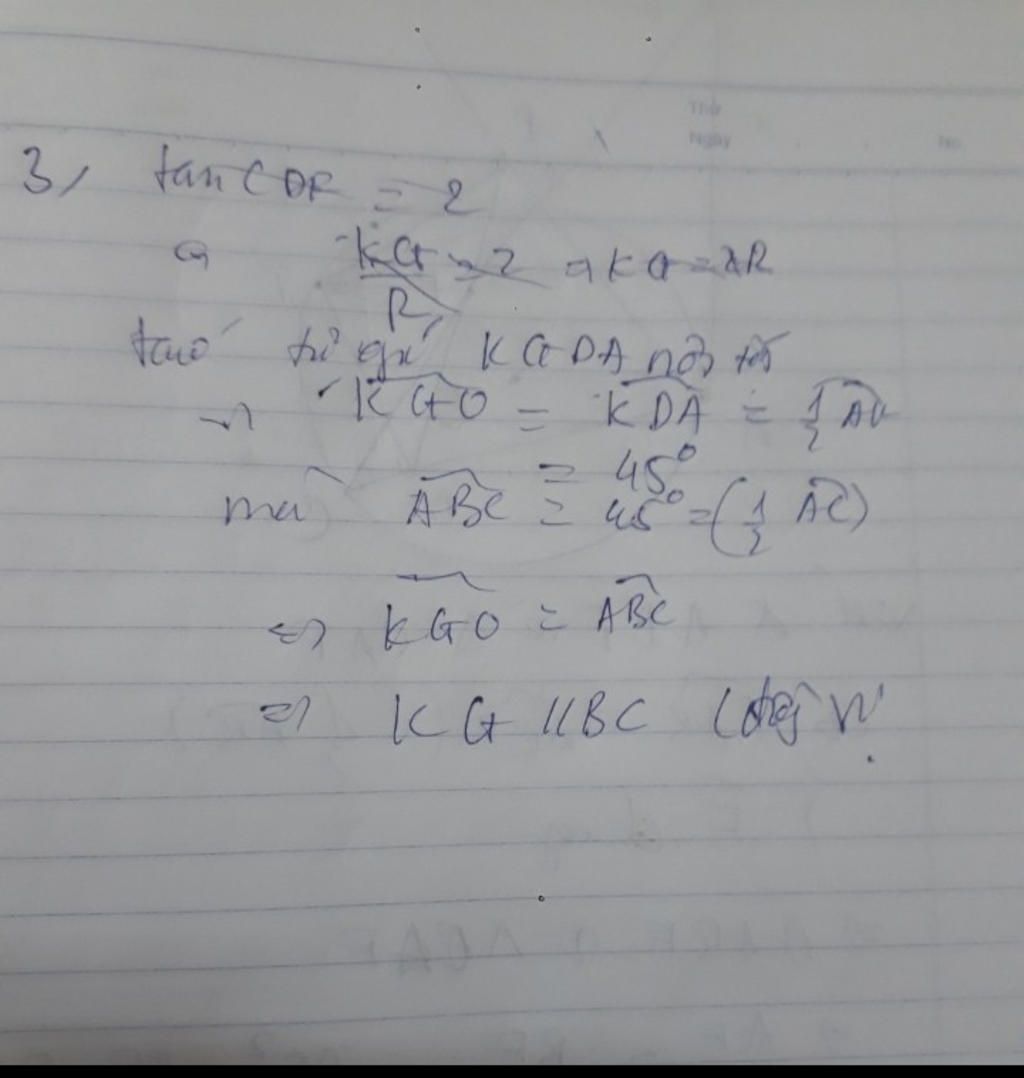 Thứ
Ngày No
3, tan CDF = 2
KG = 2 => KG = 2R
R
ta có tứ giác KGDA nội tiếp
=> KGO = KDA = 1/2 AC
= 45°
mà ABC = 45° = (1/2 AC)
=> KGO = ABC
=> KG // BC (đồng vị